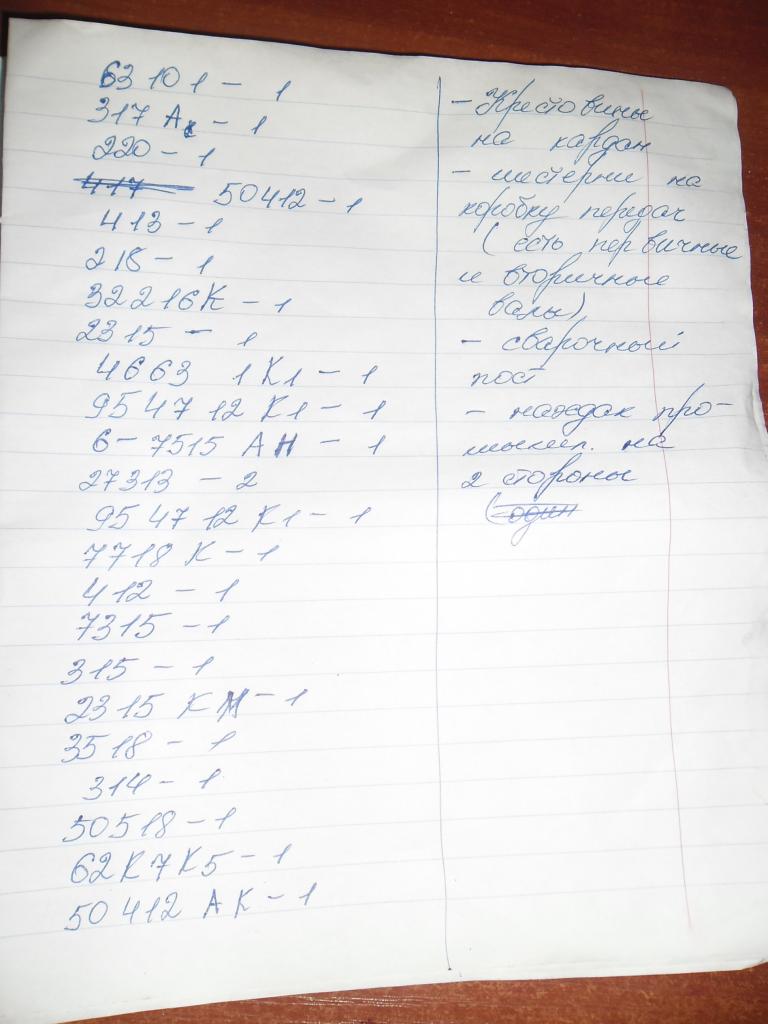 63101 - 1
317 Ак - 1
220 - 1
417 50412 - 1
413 - 1
218 - 1
32216К - 1
2315 - 1
4663 1К1 - 1
9547 12 К1 - 1
6-7515 АН - 1
27313 - 2
9547 12 К1 - 1
7718 К - 1
412 - 1
7315 - 1
315 - 1
2315 КМ - 1
3518 - 1
314 - 1
50518 - 1
62К7К5 - 1
50412 АК - 1
- Крестовины
на кардан
- шестерни на
коробку передач
(есть первичные
и вторичные
валы)
- сварочный
пост
- наждак про-
мышлен. на
2 стороны
(один